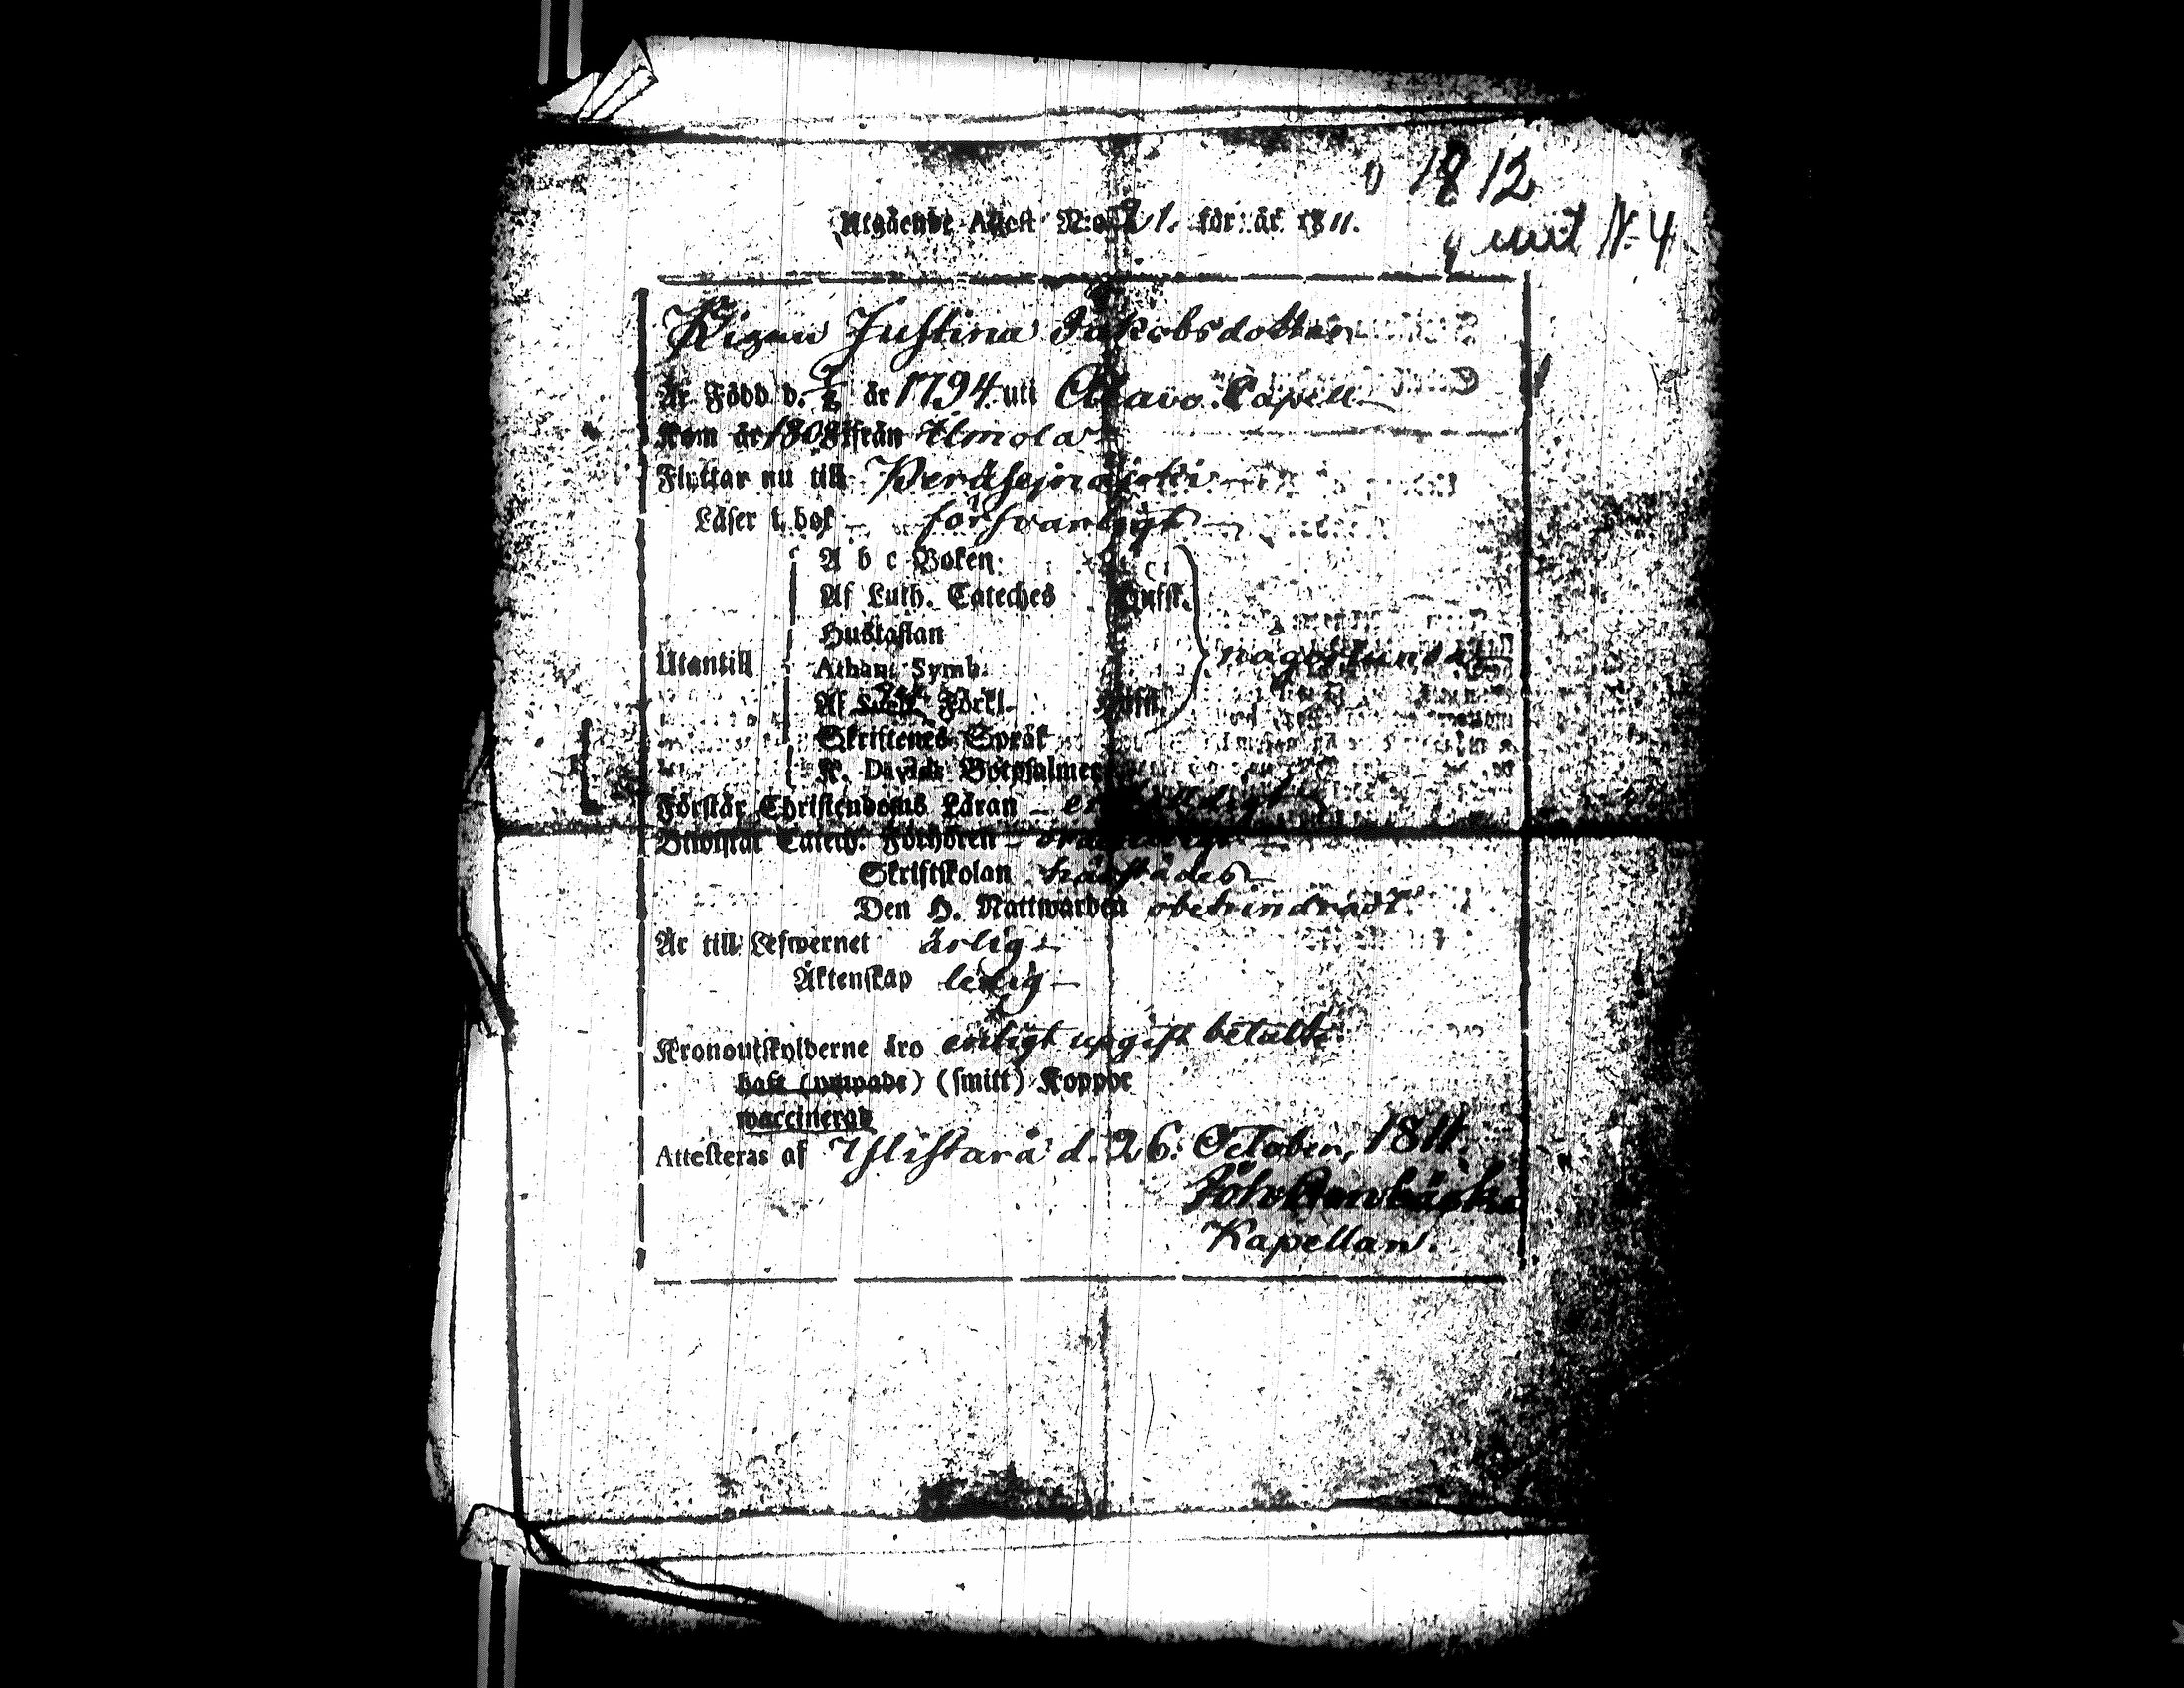 1812
Utgående Attest N:o 21. för år 1811.
N 4
Pigan Justina Jakobsdotter
Är Född d. år 1794. uti Alavo Capell
Kom år 1808 ifrån Ilmola
Flyttar nu till Peräsejnäjoki
Läser i bok försvarligt
A b c Boken
Af Luth. Cateches Hufst.
Hustaflan
Utantill någorlunda
Athan. Symb.
Af Förkl. Hufst.
Skriftenes Språk
K. Davids Botpsalmer
Förstår Christendoms Läran
Biwistat Catech. Förhören
Skriftskolan härstädes
Den H. Nattwarden obehindradt
Är till Lefwernet ärlig
Äktenskap ledig
Kronoutskylderne äro enligt upgift betalte.
haft (ympade) (smitt) Koppor
waccinerad
Attesteras af Ylistaro d. 26. October, 1811.
Kapellan.